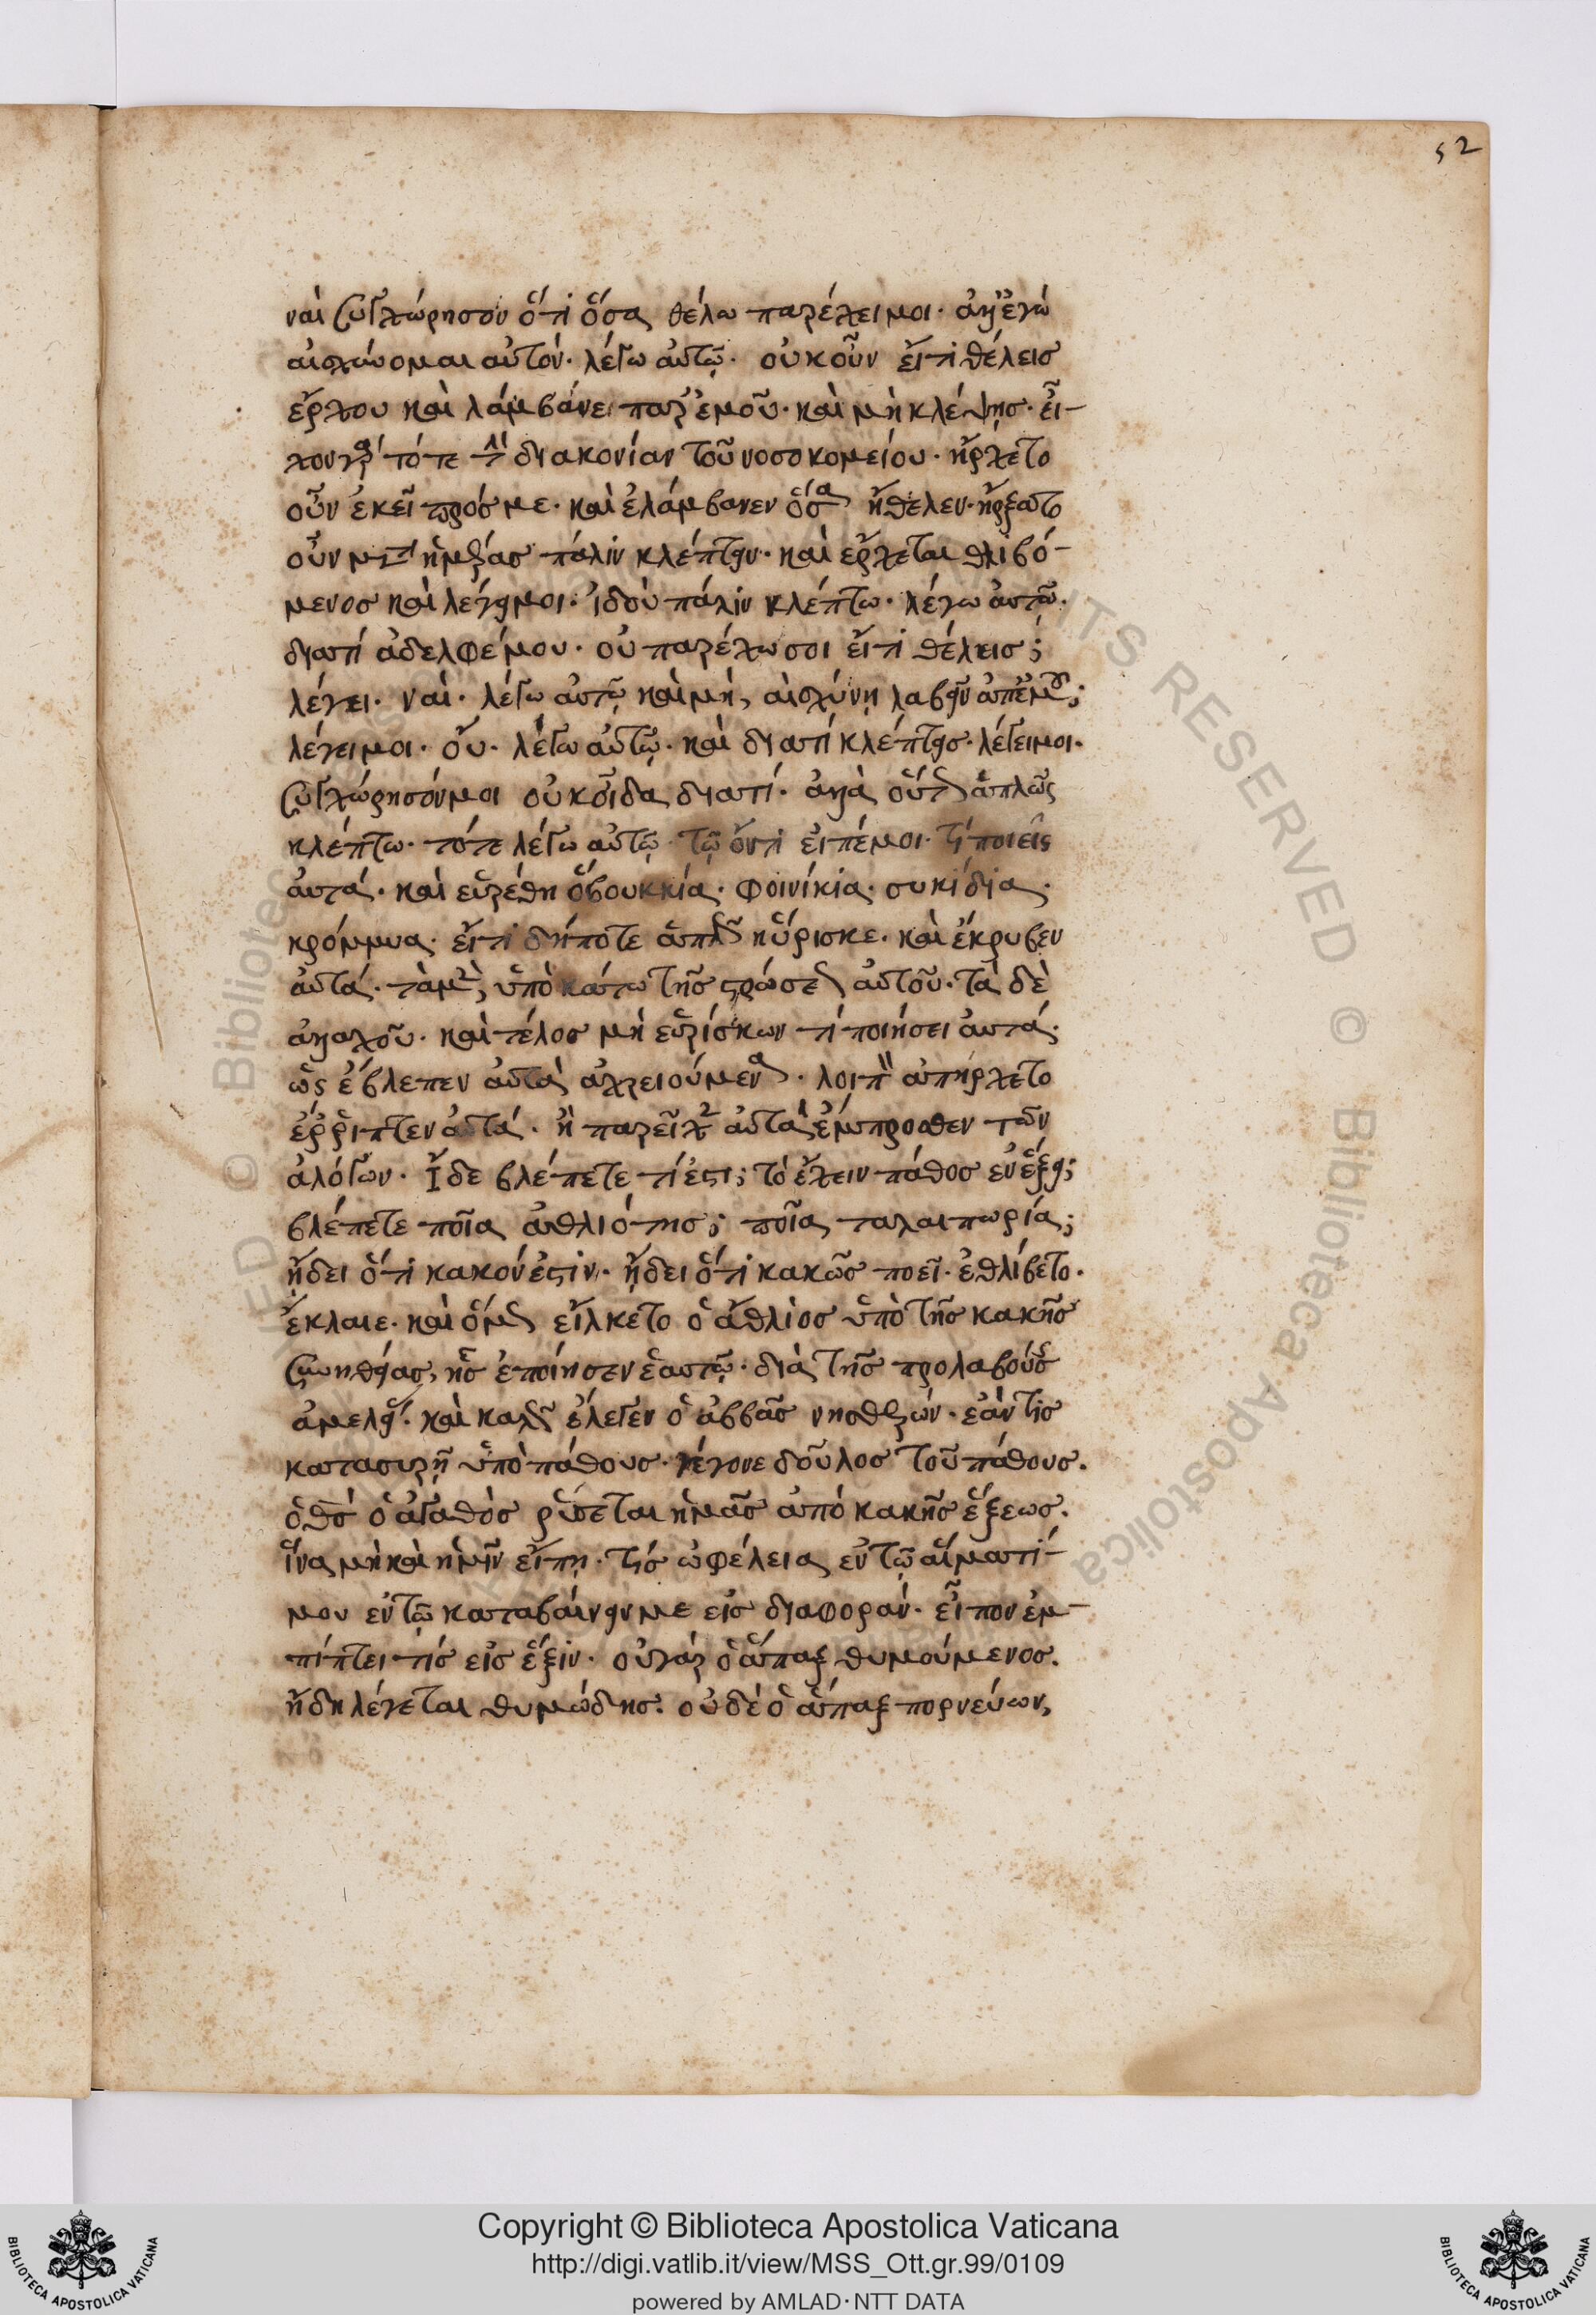 52
ναὶ συγχώρησον ὅτι ὅσα θέλω παρέχει μοι· ἀλλ' ἐγὼ
αἰσχύνομαι αὐτόν· λέγω αὐτῷ· οὐκοῦν εἴ τι θέλεις
ἔρχου καὶ λάμβανε παρ' ἐμοῦ· καὶ μὴ κλέψῃς· εἶ-
χον γὰρ τότε τὴν διακονίαν τοῦ νοσοκομείου· ἤρχετο
οὖν ἐκεῖ πρός με· καὶ ἐλάμβανεν ὅσα ἤθελεν· ἤρξατο
οὖν μετὰ ἡμέρας πάλιν κλέπτειν· καὶ ἔρχεται θλιβό-
μενος καὶ λέγει μοι· ἰδοὺ πάλιν κλέπτω· λέγω αὐτῷ·
διατί ἀδελφέ μου· οὐ παρέχω σοι εἴ τι θέλεις;
λέγει· ναί· λέγω αὐτῷ καὶ μὴ, αἰσχύνῃ λαβεῖν ἀπ' ἐμοῦ;
λέγει μοι· οὔ· λέγω αὐτῷ· καὶ διατί κλέπτεις· λέγει μοι·
συγχώρησόν μοι οὐκ οἶδα διατί· ἀλλὰ οὕτως ἁπλῶς
κλέπτω· τότε λέγω αὐτῷ· τῷ ὄντι εἰπέ μοι· τί ποιεῖς
αὐτά· καὶ εὑρέθη ὃ βουκκία· φοινίκια· συκίδια·
κρόμμυα· εἴ τι δήποτε ἁπλῶς ηὕρισκε· καὶ ἔκρυβεν
αὐτά· τὰ μὲν, ὑπὸ κάτω τῆς στρώσεως αὐτοῦ· τὰ δὲ
ἀλλαχοῦ· καὶ τέλος μὴ εὑρίσκων τί ποιήσει αὐτά·
ὡς ἔβλεπεν αὐτὰ ἀχρειούμενα· λοιπὸν ἀπήρχετο
ἔρριπτεν αὐτά· ἢ παρεῖχεν αὐτὰ ἔμπροσθεν τῶν
ἀλόγων· Ἴδε βλέπετε τί ἐστι; τὸ ἔχειν πάθος ἐν ἕξει;
βλέπετε ποῖα ἀθλιότης; ποῖα ταλαιπωρία;
ᾔδει ὅτι κακόν ἐστιν· ᾔδει ὅτι κακῶς ποεῖ· ἐθλίβετο·
ἔκλαιε· καὶ ὅμως εἵλκετο ὁ ἄθλιος ὑπὸ τῆς κακῆς
συνηθείας, ἧς ἐποίησεν ἑαυτῷ· διὰ τῆς προλαβούσης
ἀμελείας· καὶ καλῶς ἔλεγεν ὁ ἀββᾶς νησθερών· ἐάν τις
κατασυρῇ ὑπὸ πάθους· γέγονε δοῦλος τοῦ πάθους·
ὁ θς ὁ ἀγαθὸς ῥύσεται ἡμᾶς ἀπὸ κακῆς ἕξεως·
ἵνα μὴ καὶ ἡμῖν εἴπῃ· τίς ὠφέλεια ἐν τῷ αἵματί
μου ἐν τῷ καταβαίνειν με εἰς διαφοράν· εἶπον ἐμ-
πίπτει τίς εἰς ἕξιν· οὐ γὰρ ὁ ἅπαξ θυμούμενος·
ἤδη λέγεται θυμώδης· οὐδὲ ὁ ἅπαξ πορνεύων,
Copyright © Biblioteca Apostolica Vaticana
http://digi.vatlib.it/view/MSS_Ott.gr.99/0109
powered by AMLAD·NTT DATA